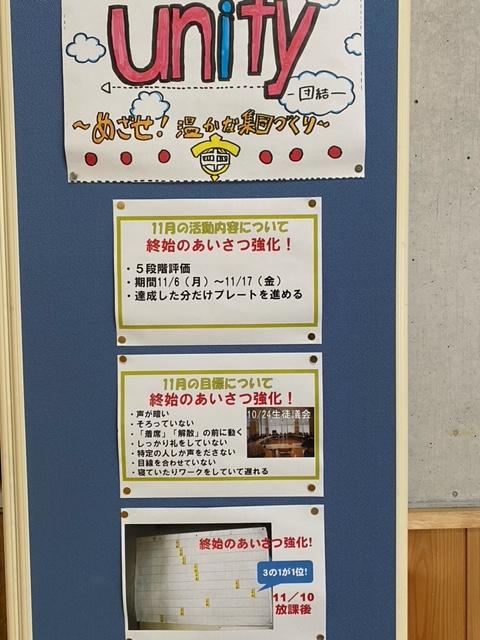 unity
－団結－
～めざせ！温かな集団づくり～
11月の活動内容について
終始のあいさつ強化！
・５段階評価
・期間11/6（月）～11/17（金）
・達成した分だけプレートを進める
11月の目標について
終始のあいさつ強化！
・声が暗い
・そろっていない
・「着席」「解散」の前に動く
・しっかり礼をしていない
・特定の人しか声をださない
・目線を合わせていない
・寝ていたりワークをしていて遅れる
10/24生徒議会
終始のあいさつ強化!
3の1が1位!
11／10
放課後